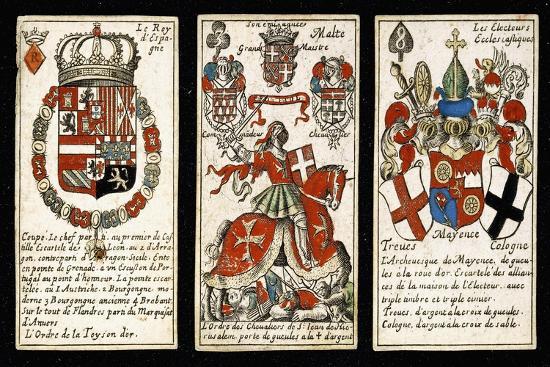 R
Le Roy
d'Espa-
gne
Coupé. Le chef parti, au premier de Cas
tille Escartelé de Leon, au 2 d'Arra-
gon, contreparti d'Aragon-Sicile. Enté
en pointe de Grenade. & un Escusson de Por
tugal au point d'honneur. La pointe escar-
telée, au 1 Austriche, 2 Bourgongne mo-
derne 3 Bourgongne ancienne 4 Brabant.
Sur le tout de Flandres parti du Marquisat
d'Anvers
L'Ordre de la Toyson d'or.
Malte
Grand Maistre
Com
Chevalier
L'Ordre des Chevaliers de St. Iean de Hie-
rusalem, porte de gueules a la d'argent
8
Les Electeurs
Ecclesiastiques
Mayence
Treves Cologne
L'Archevesque de Mayence, de gueu-
les à la roue d'or. Escartelé des allian-
ces de la maison de l'Electeur. avec
triple timbre et triple cimier.
Treves, d'argent à la croix de gueules.
Cologne, d'argent à la croix de sable.